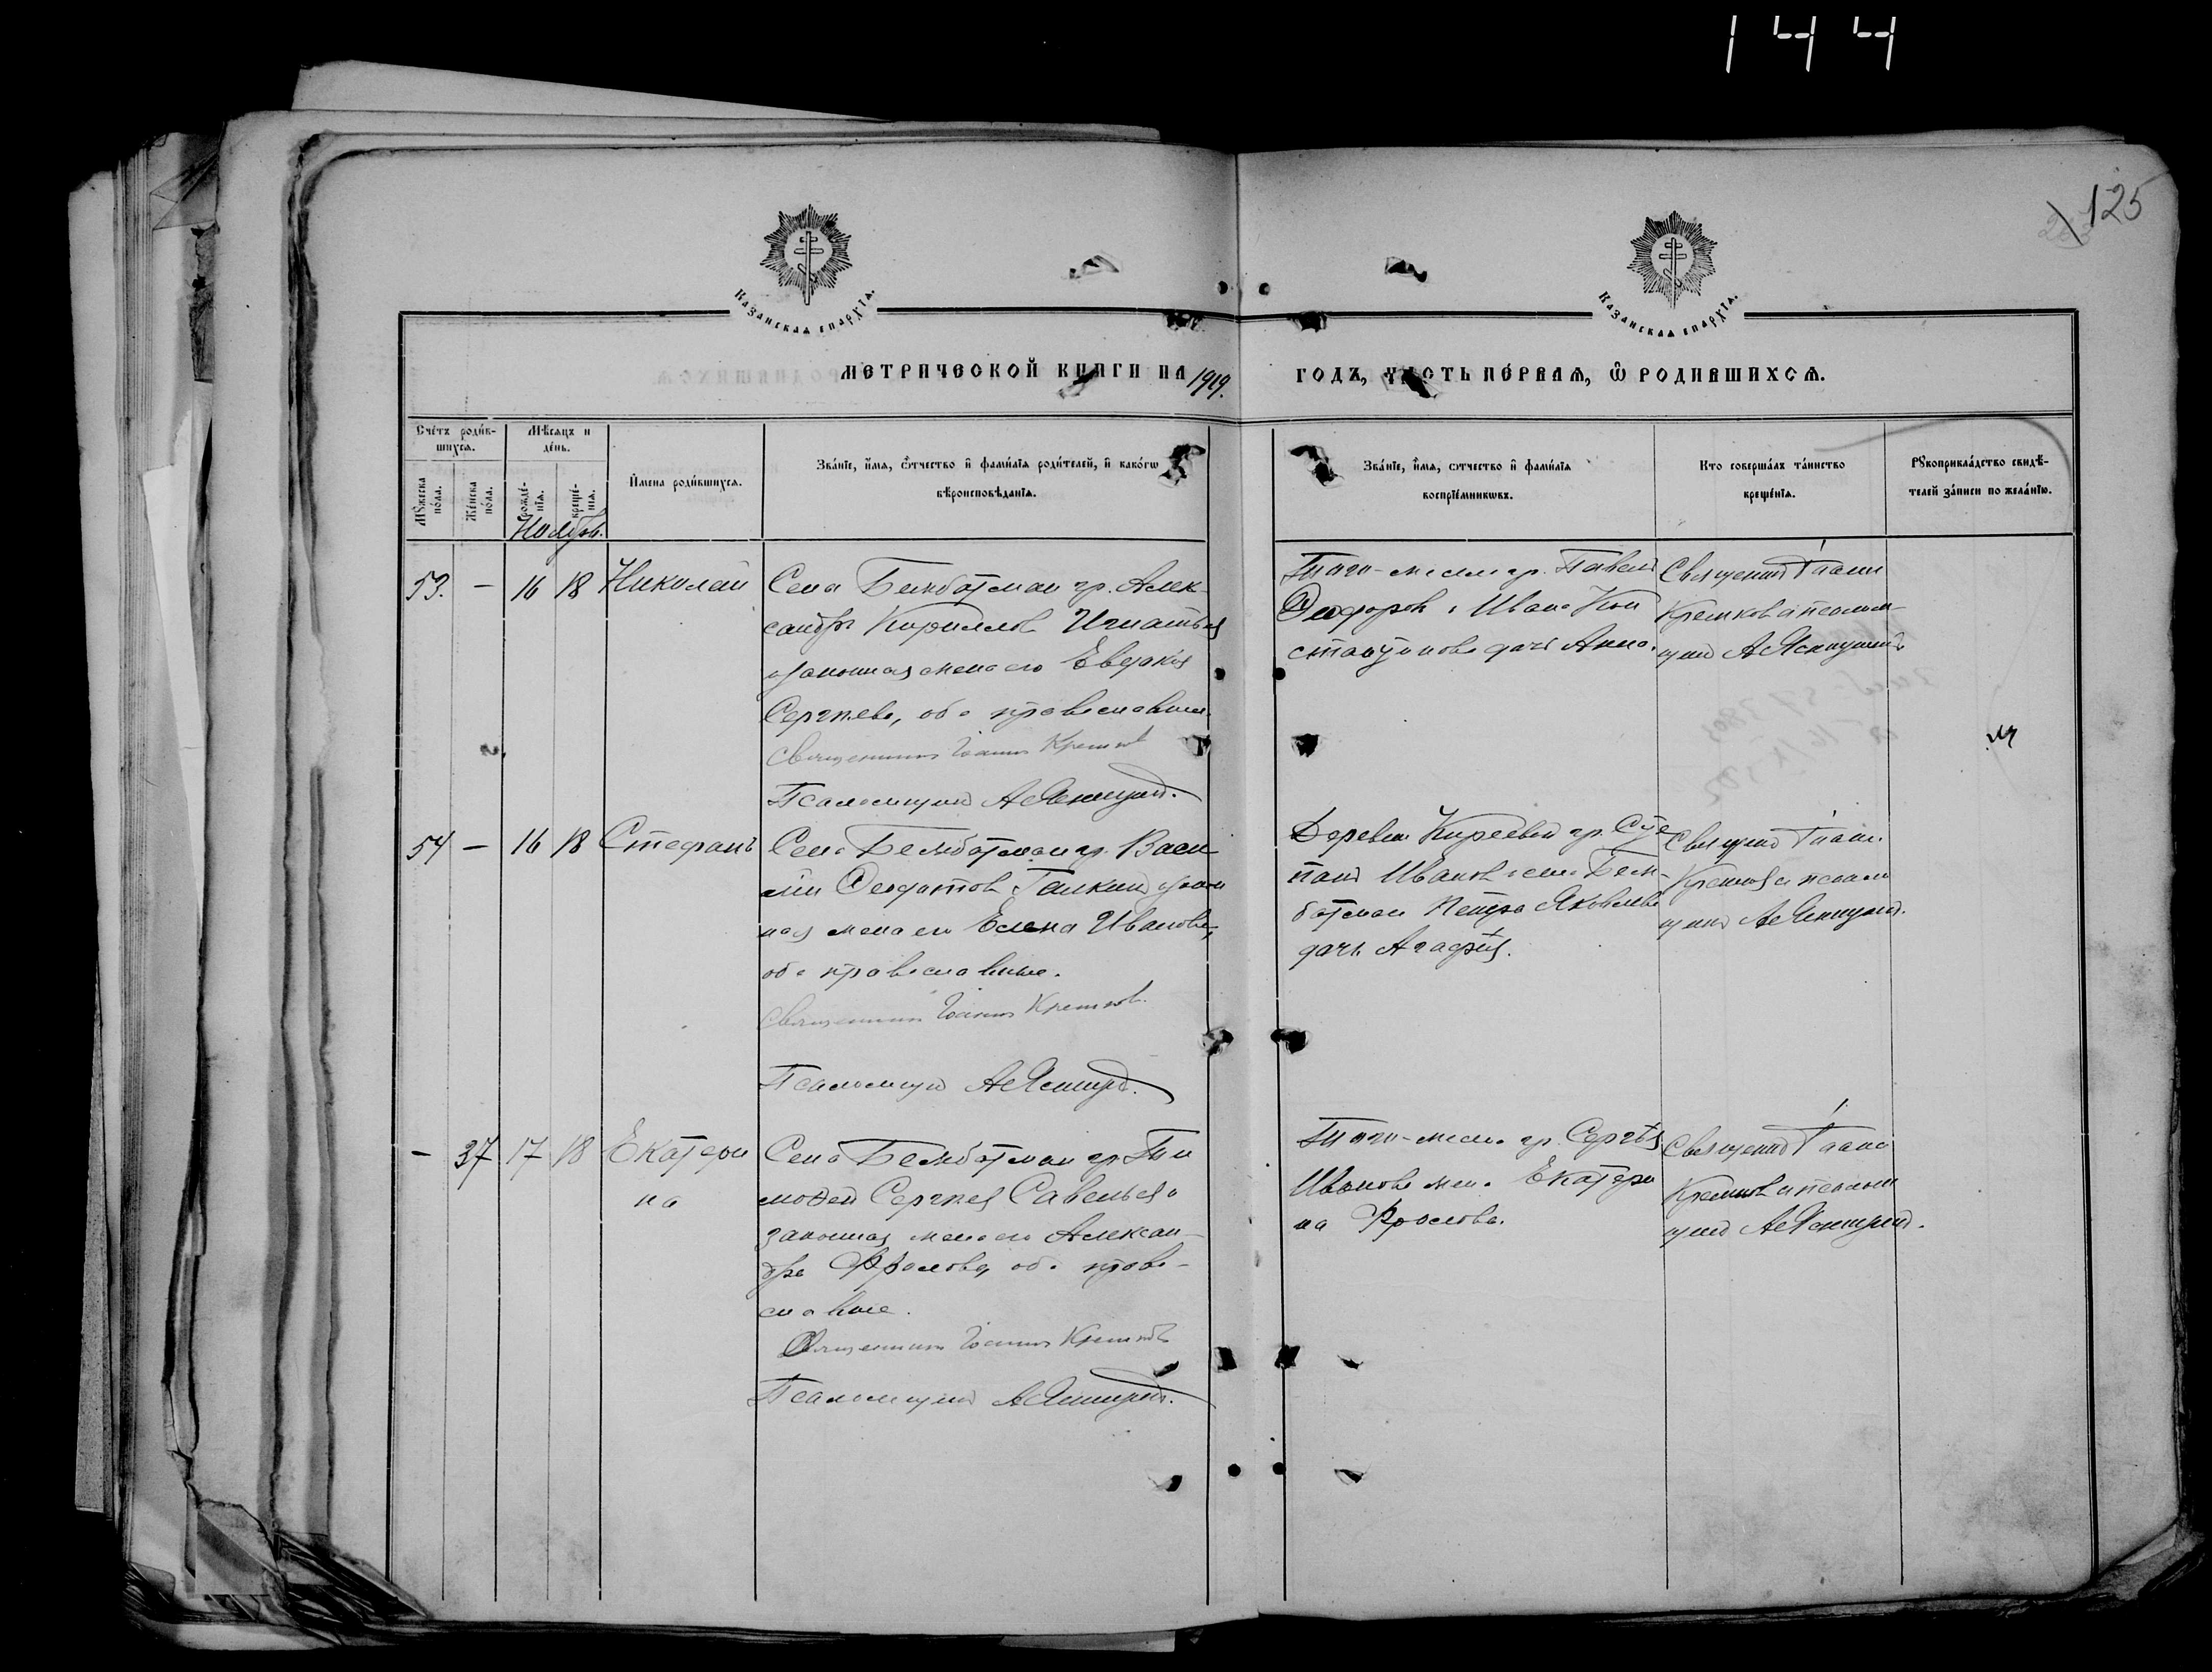 144
125
Казанская епархїа.
Казанская епархїа.
МЕТРИЧЕСКОЙ КНИГИ НА 1919
ГОДЪ, ЧАСТЬ ПЕ́РВАЯ, Ѿ РОДИВШИХСЯ.
Сче́тъ роди́в-
шихся.
Мѣсяцъ и
де́нь.
Мꙋ́жеска по́ла.
Же́нска по́ла.
рожде́-
нїя.
креще́-
нїя.
И҆мена роди́вшихся.
Зва́нїе, и҆́мя, ѻ҆́тчество и҆ фами́лїя роди́телей, и҆ како́гѡ
вѣроисповѣ́данїя.
Зва́нїе, и҆́мя, ѻ҆́тчество и҆ фами́лїя
воспрїе́мникѡвъ.
Кто соверша́лъ та́инство
креще́нїя.
Рꙋкоприкла́дство свидѣ́-
телей за́писи по жела́нїю.
Ноябрь.
53. - 16 18 Николай
Села Бимбатман гр. Алек-
сандръ Кириллов Игнатьев
и законная жена его Евдокия
Сергеева, оба православные.
Священникъ Іоаннъ
Псаломщикъ
Того-же села гр. Павелъ
Феодоров и Ивана Кон
стантинова дочь Анна.
Священник Иоанн
и псалом-
щик
54 - 16 18 Стефанъ
Села Бимбатман гр. Васи
лий Феодотов Галкин и закон
ная жена его Елена Иванова,
оба православные.
Священникъ Іоаннъ
Псаломщик
Деревни Киреевой гр. Сте
пан Иванов и села Бим-
батман Петра Яковлева
дочь Агафия.
Священник Иоанн
и псалом
щик
- 37 17 18 Екатери
на
Села Бимбатман гр. Ти
мофей Сергиев Савельев и
законная жена его Алексан-
дра Фролова, оба право-
славные.
Священникъ Іоаннъ
Псаломщик
Того-же села гр. Сергѣя
Иванова жена Екатери
на Фролова.
Священник Иоанн
и псалом
щик